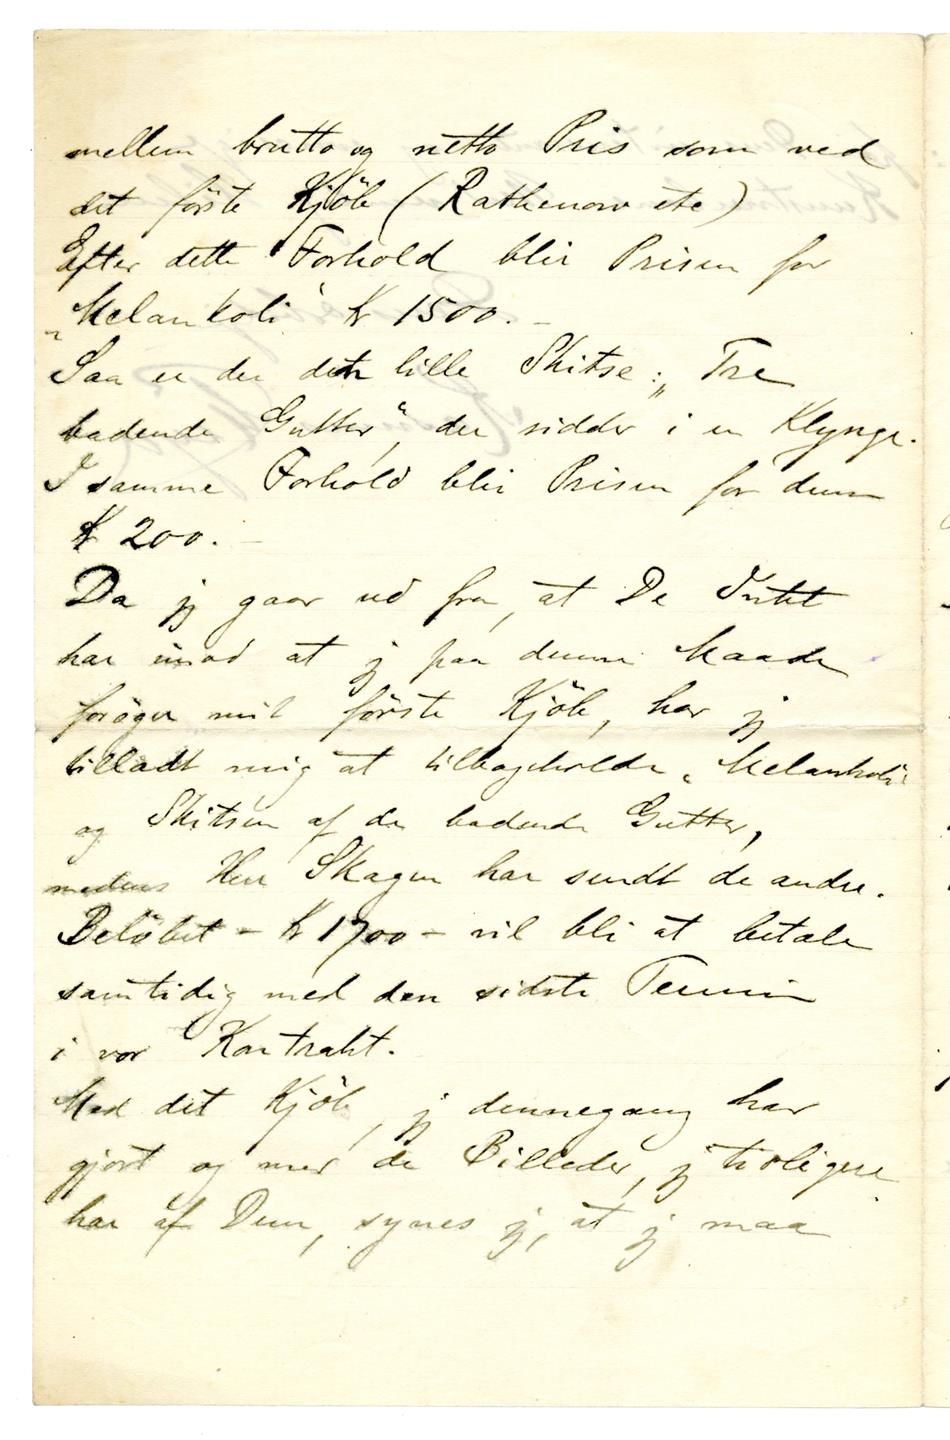 mellem brutto og netto Pris som ved
det förste Kjöb (Rathenow etc)
Efter dette Forhold blir Prisen for
„Melankoli" Kr 1500.-
Saa er der den lille Skitse: „Tre
badende Gutter", der sidder i en Klynge.
I samme Forhold blir Prisen for denne
Kr 200.-
Da jeg gaar ud fra, at De Intet
har imod at jeg paa denne Maade
foröger mit förste Kjöb, har jeg
tilladt mig at tilbageholde „Melankoli"
og Skitsen af de badende Gutter,
medens Herr Skagen har sendt de andre.
Belöbet – Kr 1700 – vil bli at betale
samtidig med den sidste Termin
i vor Kontrakt.
Med det Kjöb, jeg dennegang har
gjort og med de Billeder, jeg tidligere
har af Dem, synes jeg, at jeg maa